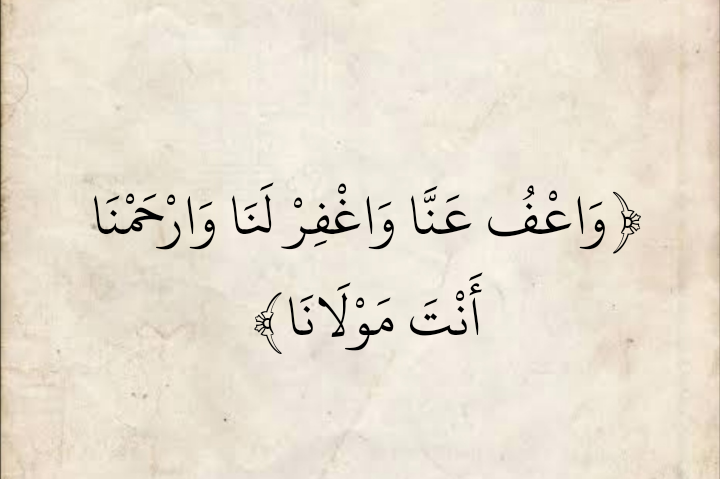 ﴿وَاعْفُ عَنَّا وَاغْفِرْ لَنَا وَارْحَمْنَا
أَنْتَ مَوْلَانَا﴾